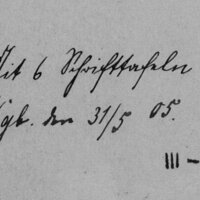 Mit 6 Schrifttafeln
Kgb. den 31/5 05.
III -